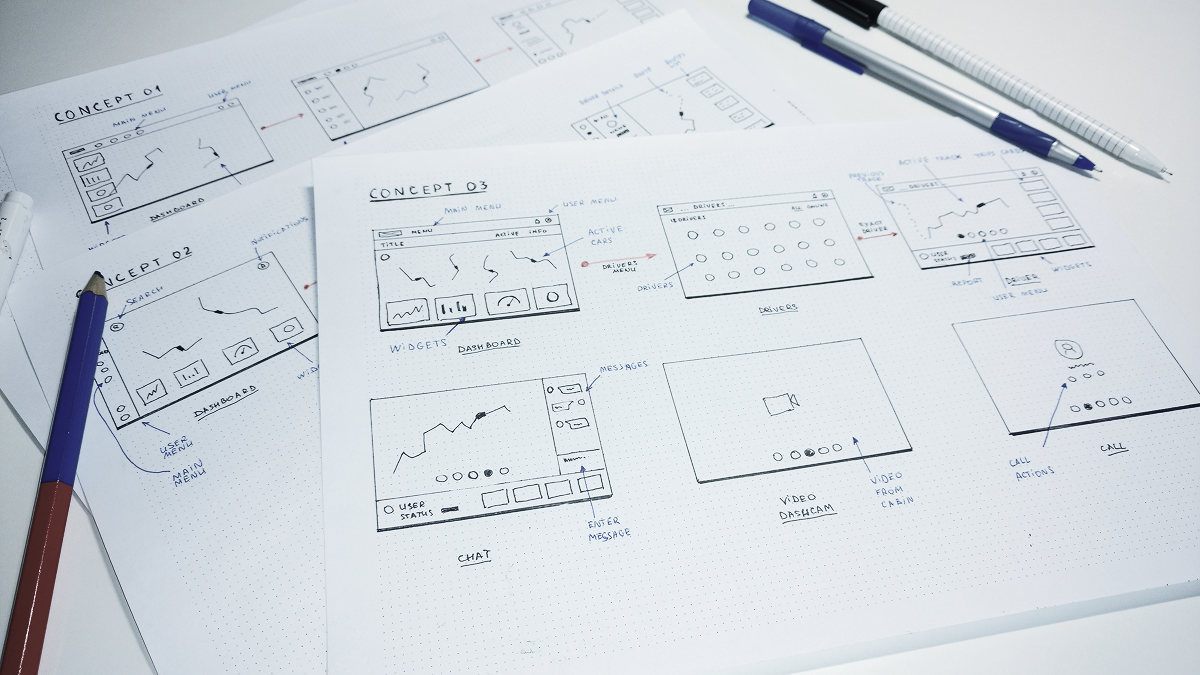 CONCEPT 01
MAIN MENU
USER MENU
DASHBOARD
CONCEPT 02
SEARCH
NOTIFICATIONS
DASHBOARD
USER
MENU
MAIN
MENU
CONCEPT 03
MAIN MENU
USER MENU
MENU
TITLE
ACTIVE INFO
ACTIVE
CARS
WIDGETS
DASHBOARD
DRIVERS
MENU
... DRIVERS ...
18 DRIVERS
ALL ONLINE
DRIVERS
DRIVERS
EXACT
DRIVER
PREVIOUS
TRACK
ACTIVE TRACK
... DRIVERS
USER
STATUS
REPORT
DRIVER
USER MENU
WIDGETS
MESSAGES
USER
STATUS
ENTER
MESSAGE
CHAT
VIDEO
FROM
CABIN
VIDEO
DASHCAM
CALL
ACTIONS
CALL